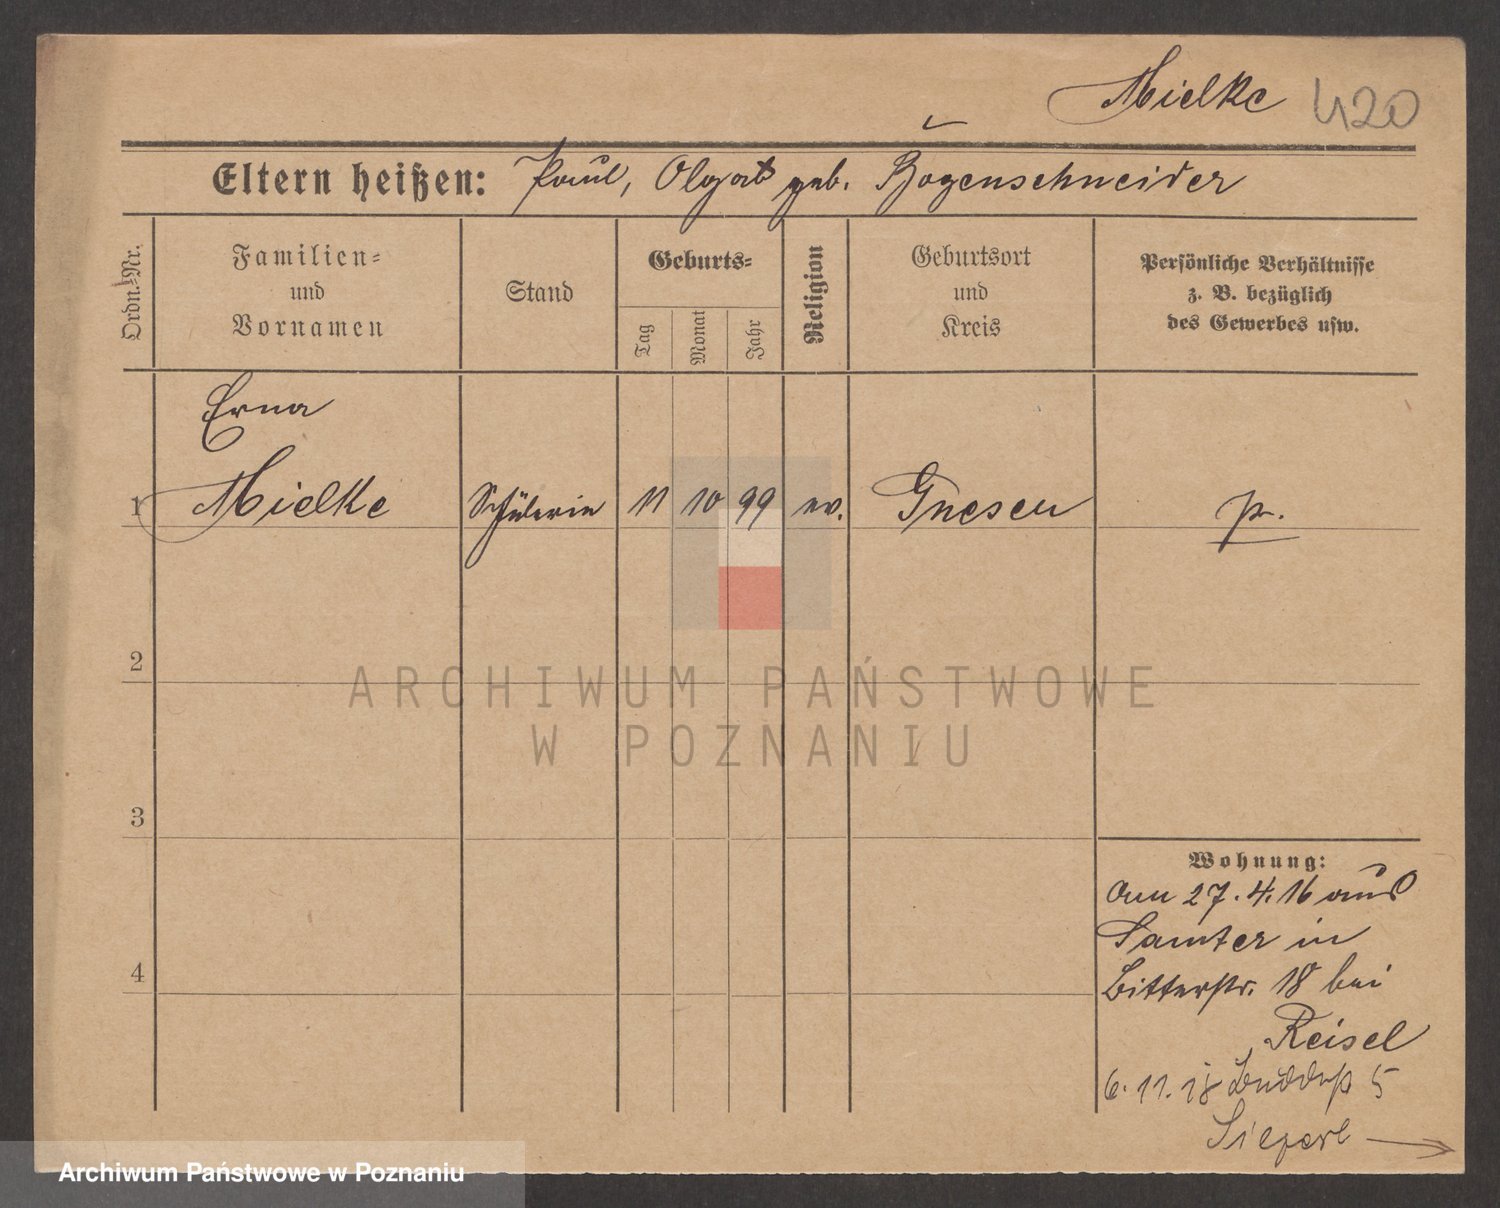 Mielke 420
Eltern heißen: Paul, Olga geb. Bogenschneider
Ordn.-Nr.
Familien-
und
Vornamen
Stand
Geburts-
Tag
Monat
Jahr
Religion
Geburtsort
und
Kreis
Persönliche Verhältnisse
z. B. bezüglich
des Gewerbes usw.
Erna
1 Mielke Schülerin 11 10 99 ev. Gnesen p.
2
ARCHIWUM PAŃSTWOWE
W POZNANIU
3
4
Wohnung:
Am 27.4.16 aus
Samter in
Bitterstr. 18 bei
Reisel
6.11.18 5
Archiwum Państwowe w Poznaniu